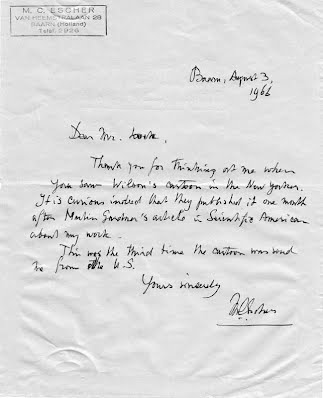 M. C. ESCHER
VAN HEEMSTRALAAN 29
BAARN (Holland)
Telef. 2926
Baarn, August 3,
1966
Dear Mr.
Thank you for thinking at me when
you saw Wilson's cartoon in the New Yorker.
It is curious indeed that they published it one month
after Martin Gardner's article in Scientific American
about my work.
This was the third time the cartoon was send
to me from the U.S.
Yours sincerely
MCEscher